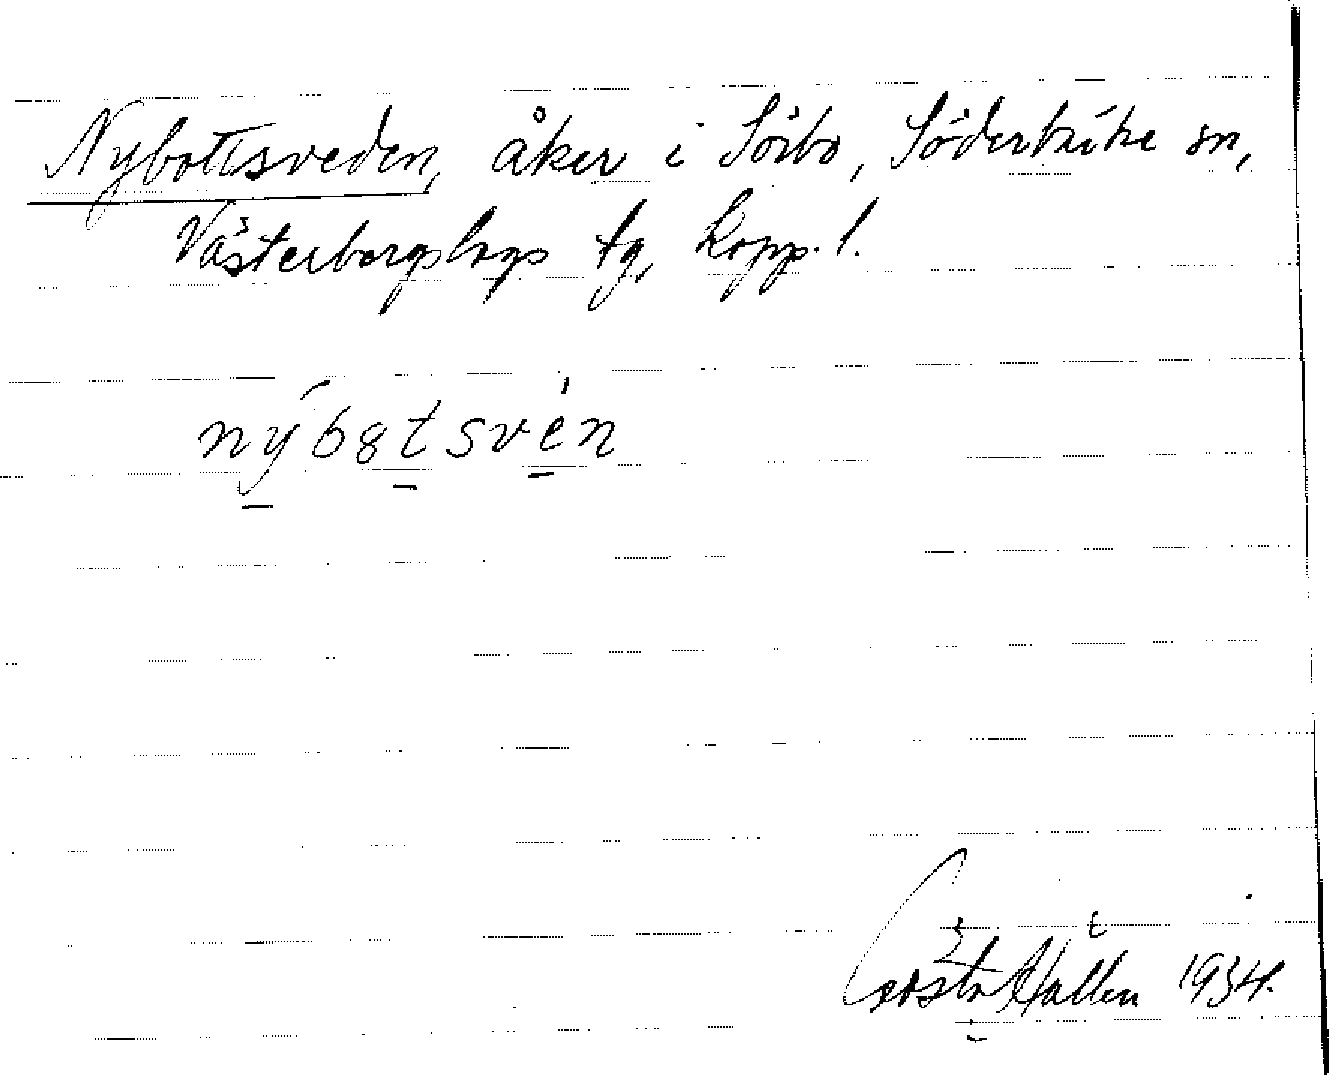 Nybottsveden, åker i Sörbo, Söderbärke sn,
Västerbergslags tg, Kopp. l.
nýbȣtsvén
Gösta Hallen 1934.